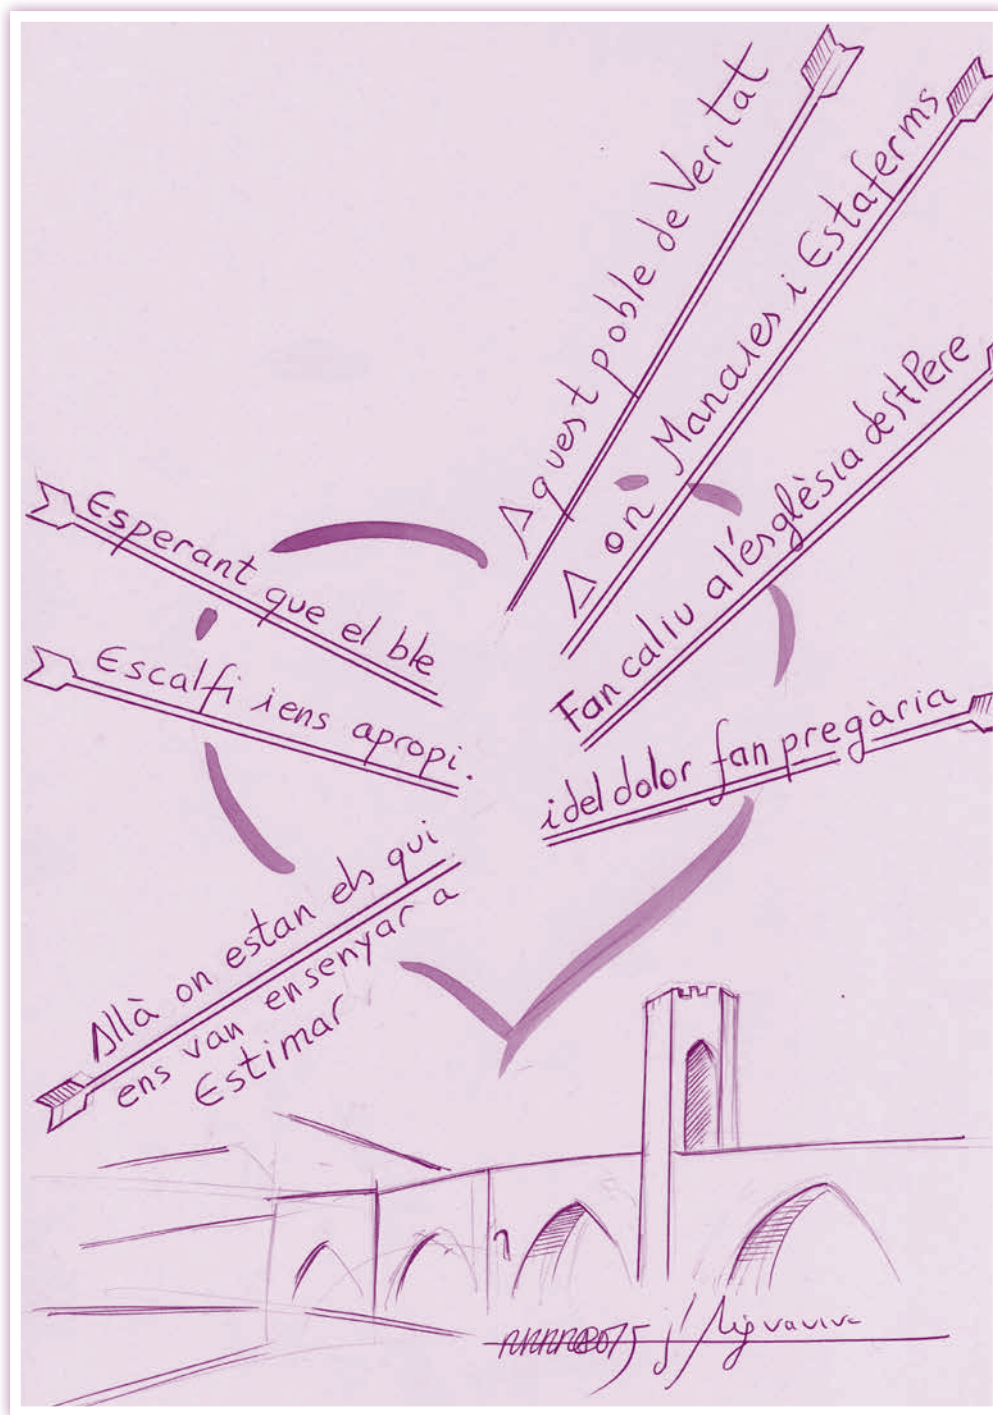 Aquest poble de Veritat
A on Manaies i Estaferms
Fan caliu a l'església de st Pere
i del dolor fan pregària
Esperant que el ble
Escalfi i ens apropi.
Allà on estan els qui
ens van ensenyar a
Estimar